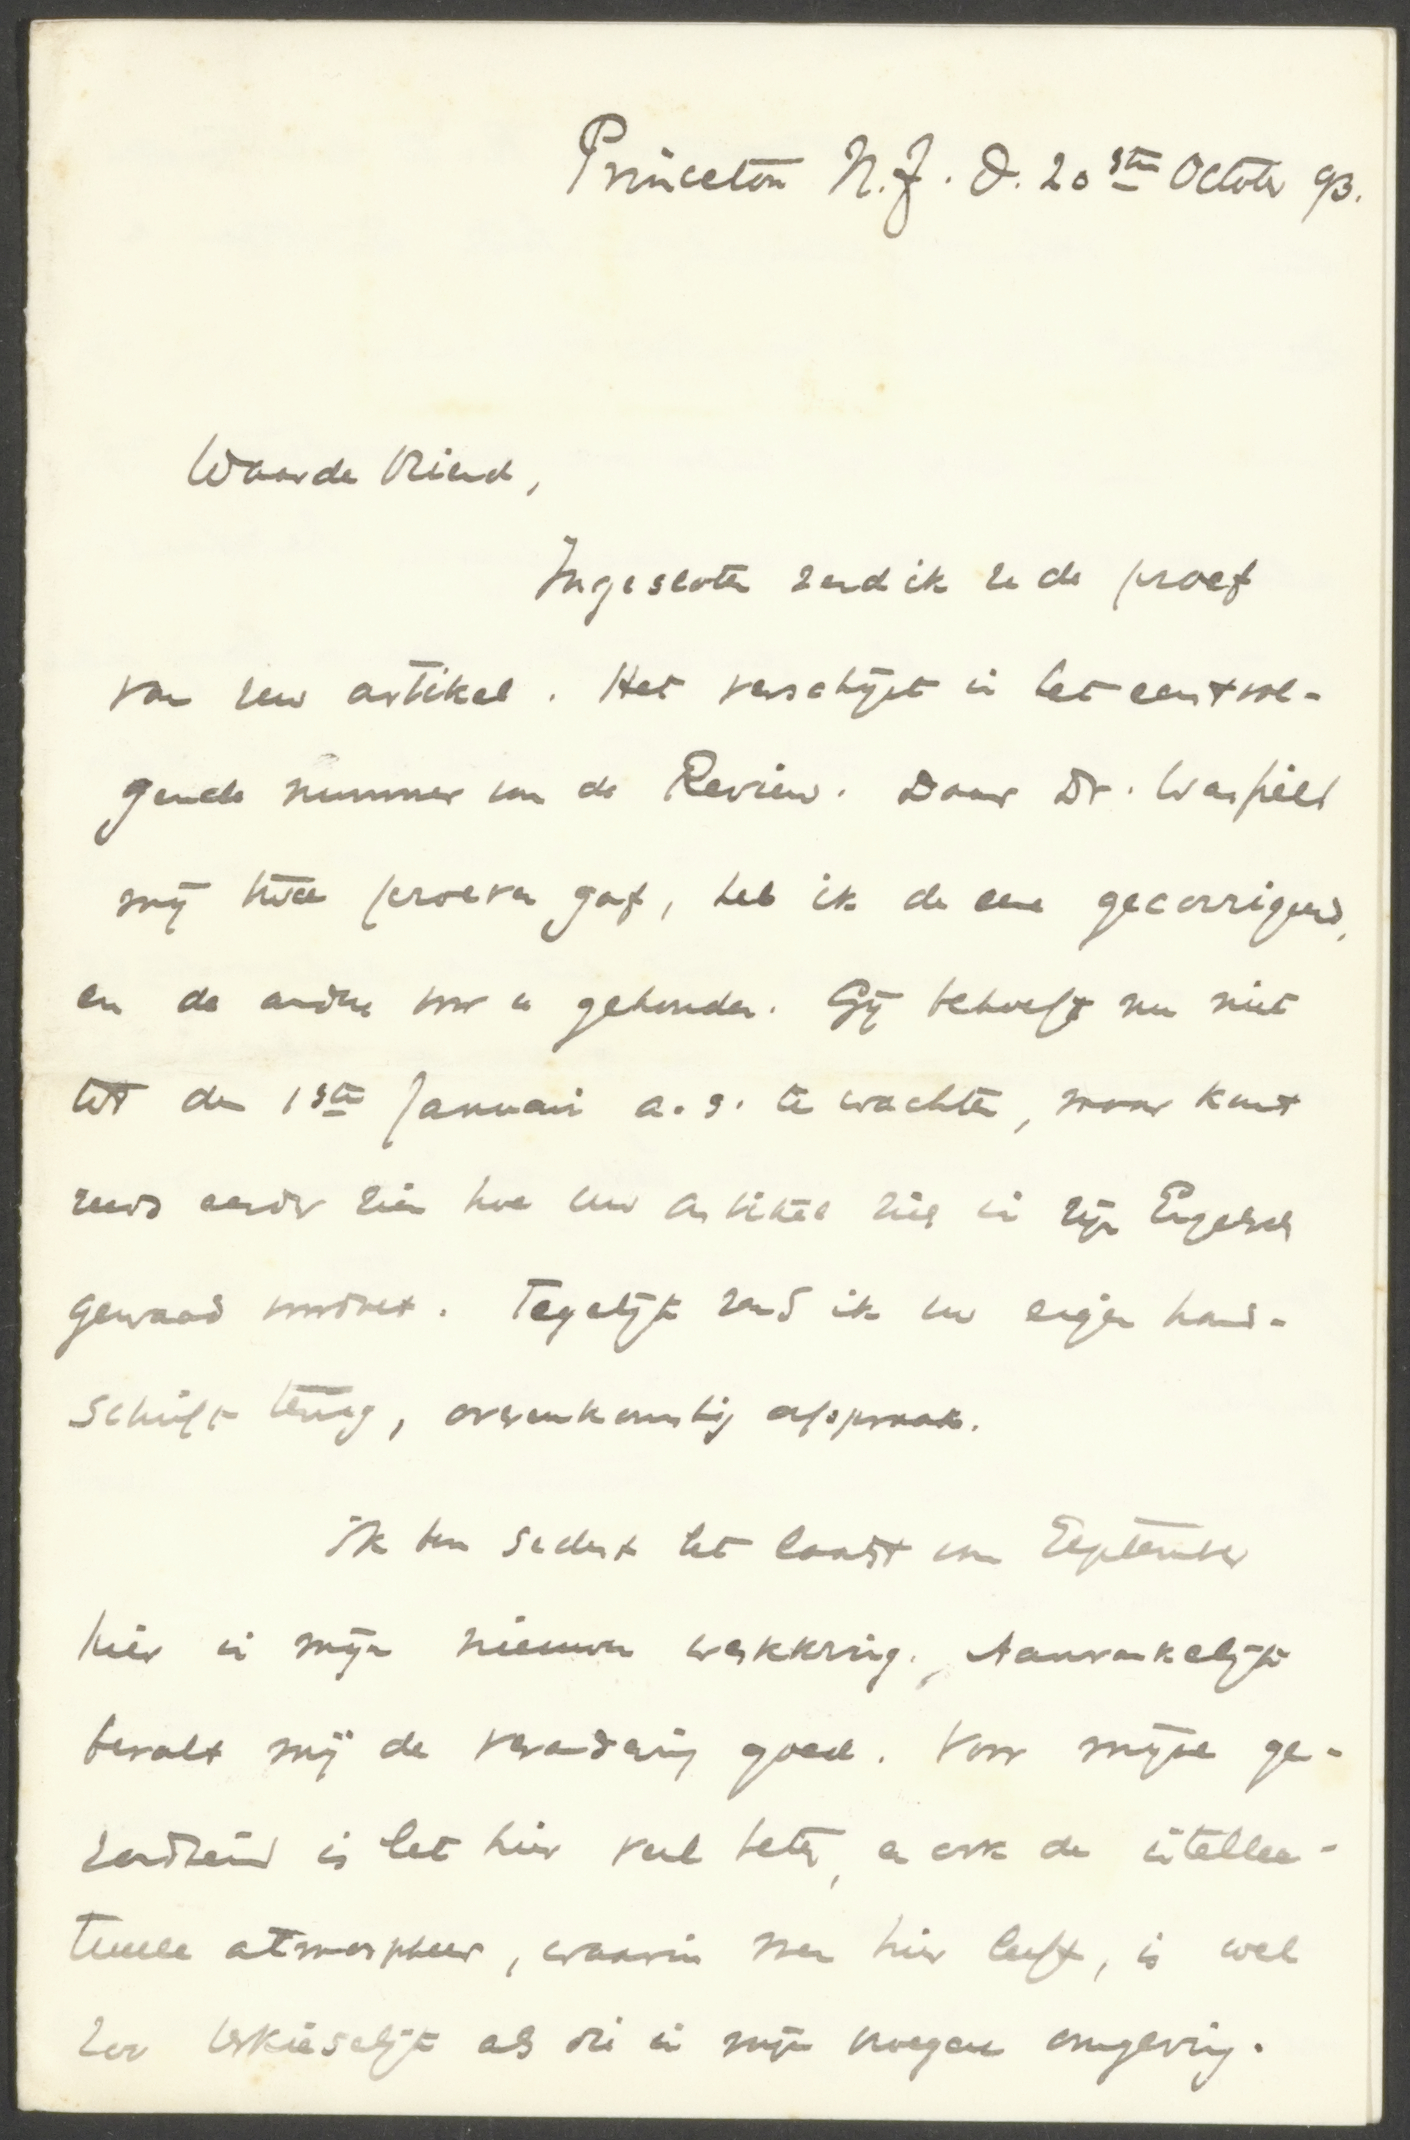 Princeton N.J. d. 20sten October 93.
Waarde Vriend,
Ingesloten zend ik u de proef
van uw artikel. Het verschijnt in het eerstvol-
gende nummer van de Review. Daar Dr. Warfield
mij twee proeven gaf, heb ik de eene gecorrigeerd,
en de andre voor u gehouden. Gij behoeft nu niet
tot den 1sten Januari a.s. te wachten, maar kunt
reeds eerder zien hoe uw artikel zich in zijn Engelsch
gewaad voordoet. Tegelijk zend ik uw eigen hand-
schrift terug, overeenkomstig afspraak.
Ik ben sedert het laatst van September
hier in mijn nieuwen werkkring. Aanvankelijk
bevalt mij de verandering goed. Voor mijne ge-
zondheid is het hier veel beter, en ook de intellec-
tueele atmospheer, waarin men hier leeft, is wel
zoo verkieselijk als die in mijn vroegere omgeving.